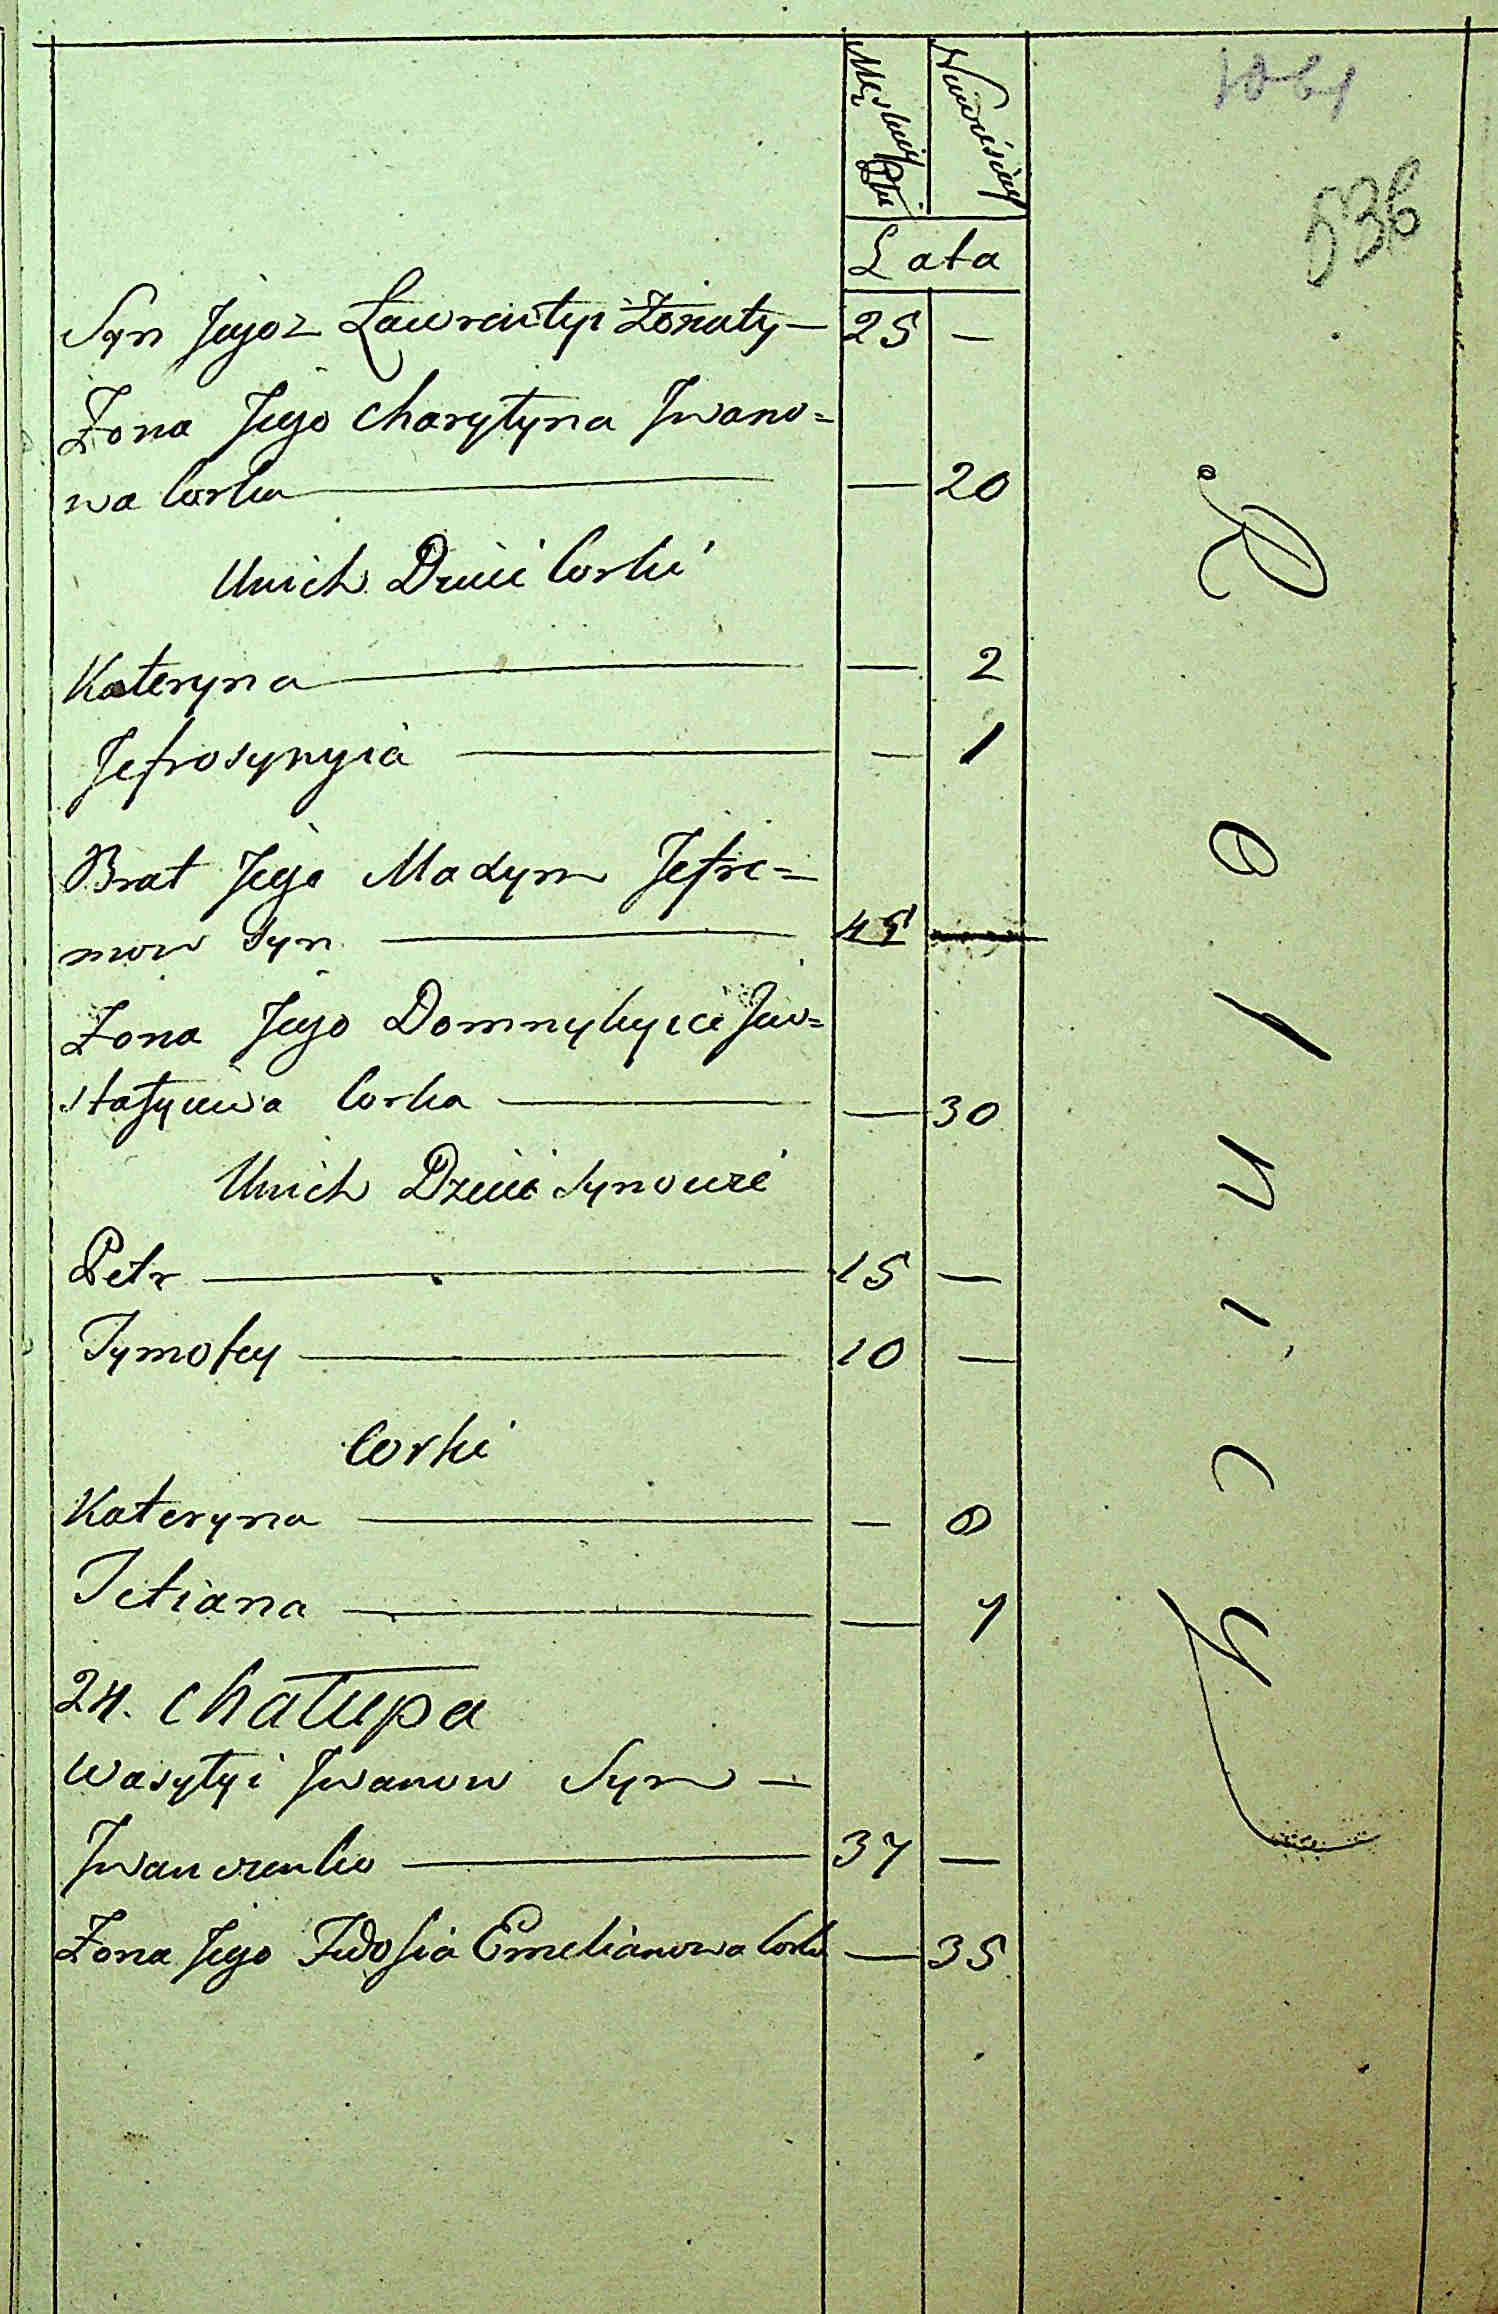 Męskiey Płci
Niewieściey
1061
536
Lata
Syn Jegoż Ławrentyi Żonaty — 25 —
Żona Jego Charytyna Jwano=
wa Corka — — 20
Unich Dzieci Corki
Kateryna — — 2
Jefrosynyia — — 1
Brat Jego Madym Jefre=
mow Syn — 45 —
Żona Jego Domnykyia Jew=
stafyiewa Corka — — 30
Unich Dzieci Synowie
Petr — 15 —
Tymofey — 10 —
Corki
Kateryna — — 8
Tetiana — — 7
24. Chałupa
Wasyłyi Jwanow Syn —
Jwanczenko — 37 —
Żona Jego Fedosia Emelianowa Corka — 35